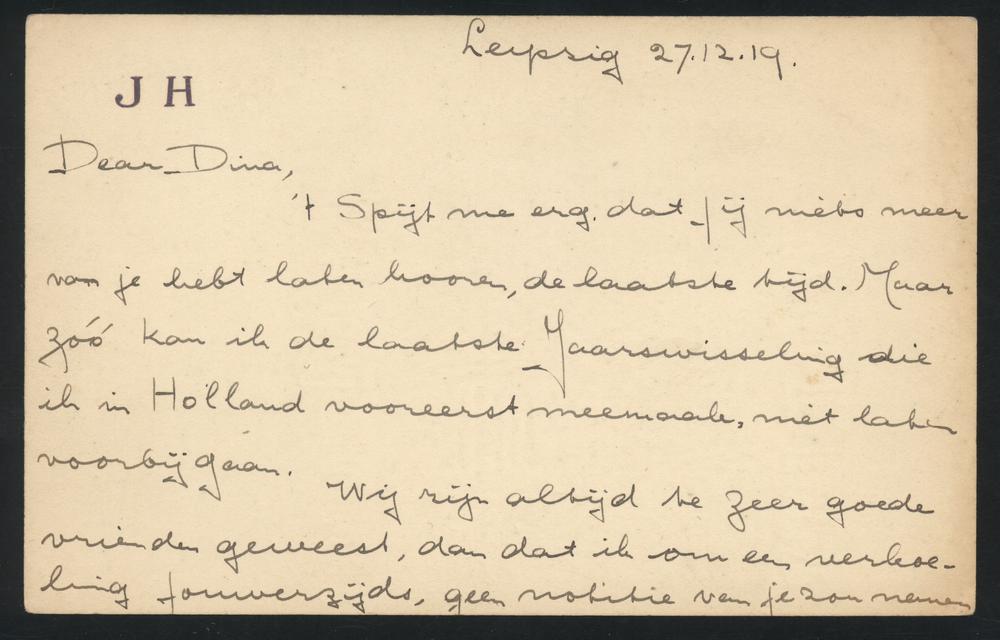 Leipzig 27.12.19.
J H
Dear Dina,
't Spijt me erg, dat jij niets meer
van je hebt laten hooren, de laatste tijd. Maar
zóó kan ik de laatste Jaarswisseling die
ik in Holland vooreerst meemaak, niet laten
voorbijgaan.
Wij zijn altijd te zeer goede
vrienden geweest, dan dat ik om een verkoe-
ling jouwerzijds, geen notitie van je zou nemen